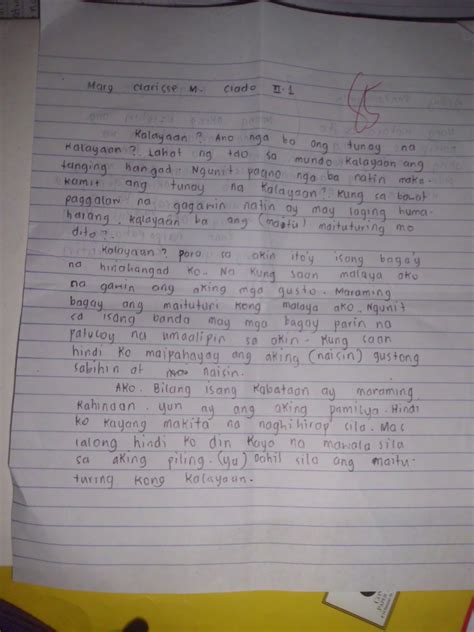 Mary Clarisse M. Clado II-1
85
Kalayaan? Ano nga ba ang tunay na
kalayaan? Lahat ng tao sa mundo kalayaan ang
tanging hangad. Ngunit paano nga ba natin maka-
kamit ang tunay na kalayaan? Kung sa bawat
paggalaw na gagawin natin ay may laging huma-
harang. Kalayaan ba ang (maitu) maituturing mo
dito?
Kalayaan? para sa akin ito'y isang bagay
na hinahangad ko. Na kung saan malaya ako
na gawin ang aking mga gusto. Maraming
bagay ang maituturi kong malaya ako. Ngunit
sa isang banda may mga bagay parin na
patuloy na umaalipin sa akin. Kung saan
hindi ko maipahayag ang aking (naisin) gustong
sabihin at naisin.
Ako. Bilang isang kabataan ay maraming
kahinaan. Yun ay ang aking pamilya. Hindi
ko kayang makita na naghihirap sila. Mas
lalong hindi ko din kaya na mawala sila
sa aking piling. (ya) Dahil sila ang maitu-
turing kong kalayaan.